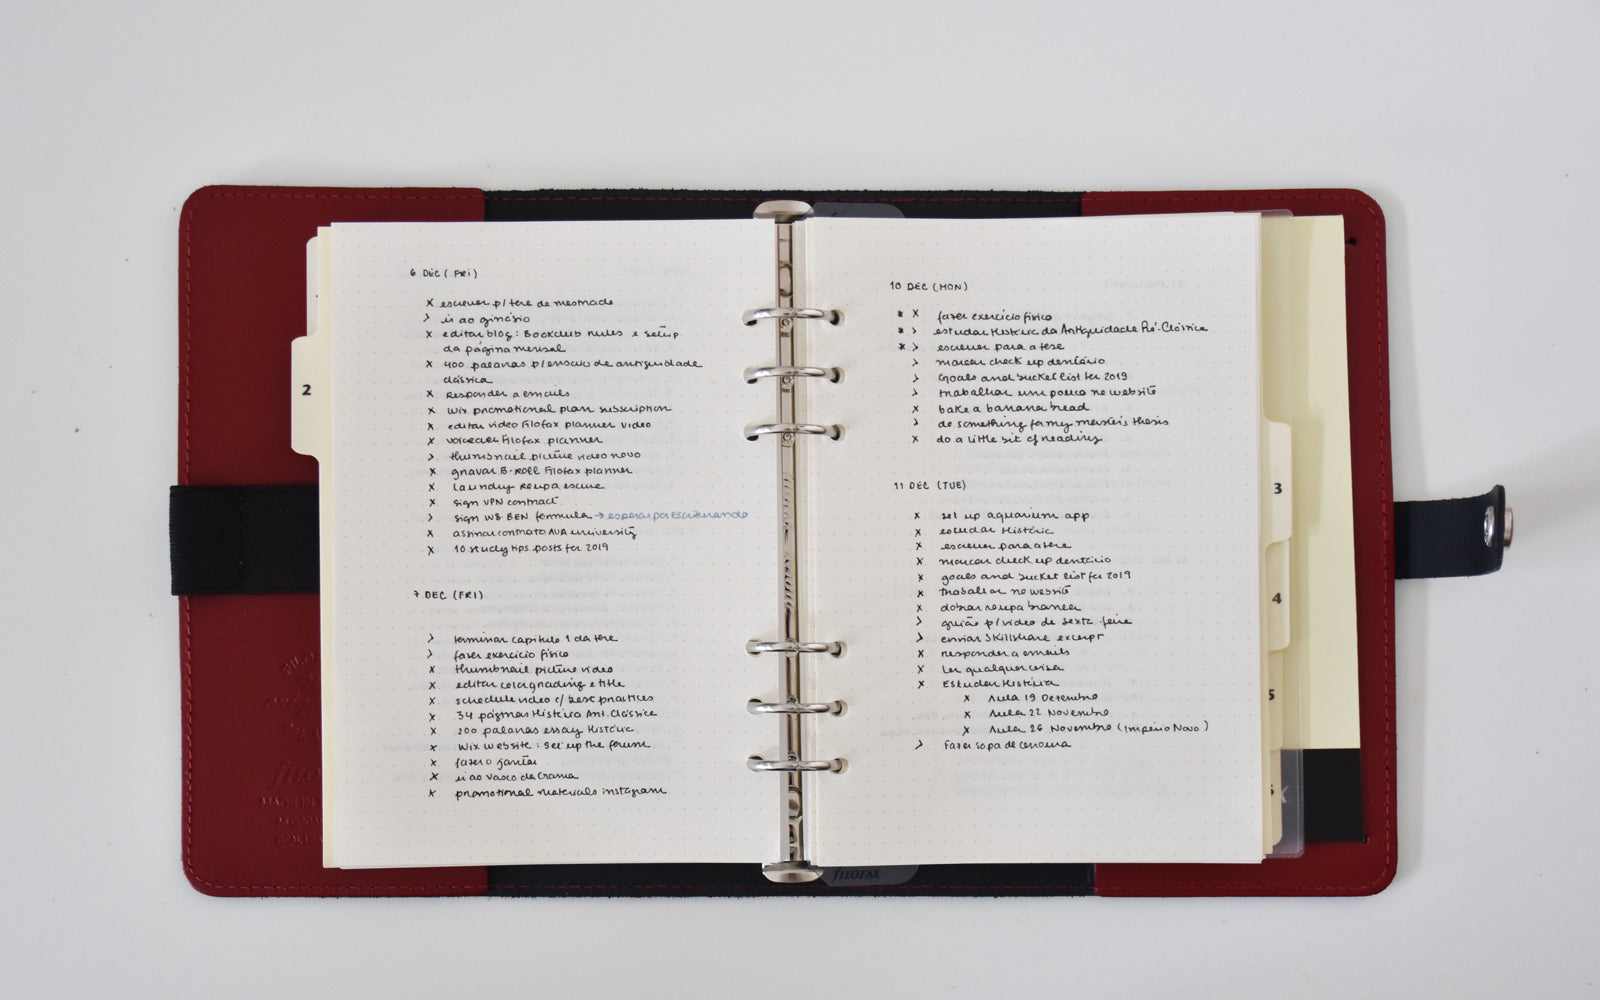 6 DEC (FRI)
x escrever p/ tese de mestrado
> ir ao ginásio
x editar blog: Bookclub rules e setup
da página mensal
x 400 palavras p/ ensaio de antiguidade
clássica
x Responder a emails
x wix promotional plan subscription
x editar video filofax planner video
x voiceover filofax planner
> thumbnail picture video novo
x gravar B-ROLL filofax planner
x laundry roupa escura
x sign VPN contract
> sign W8 BEN formula → esperar por Escriturando
x assinar contrato AVA university
x 10 study tips posts for 2019
7 DEC (FRI)
> terminar capitulo 1 da tese
> fazer exercício físico
x thumbnail picture video
x editar color grading e title
x schedule video c/ best practices
x 34 páginas História Ant. Clássica
x 200 palavras essay História
x Wix website: set up the forum
x fazer o jantar
x ir ao Vasco da Gama
x promotional materials instagram
10 DEC (MON)
* x fazer exercício físico
* > estudar História da Antiguidade Pré-Clássica
* > escrever para a tese
> marcar check up dentário
> Goals and bucket list for 2019
> trabalhar um pouco no website
x bake a banana bread
> do something for my master's thesis
x do a little bit of reading
11 DEC (TUE)
x set up aquarium app
x estudar História
x escrever para a tese
x marcar check up dentário
x goals and bucket list for 2019
x trabalhar no website
x dobrar roupa branca
> guião p/ video de sexta-feira
> enviar Skillshare excerpt
x responder a emails
x Ler qualquer coisa
x Estudar História
x Aula 19 Dezembro
x Aula 22 Novembro
x Aula 26 Novembro (Império Novo)
> Fazer sopa de cenoura
2
3
4
5
FILOFAX